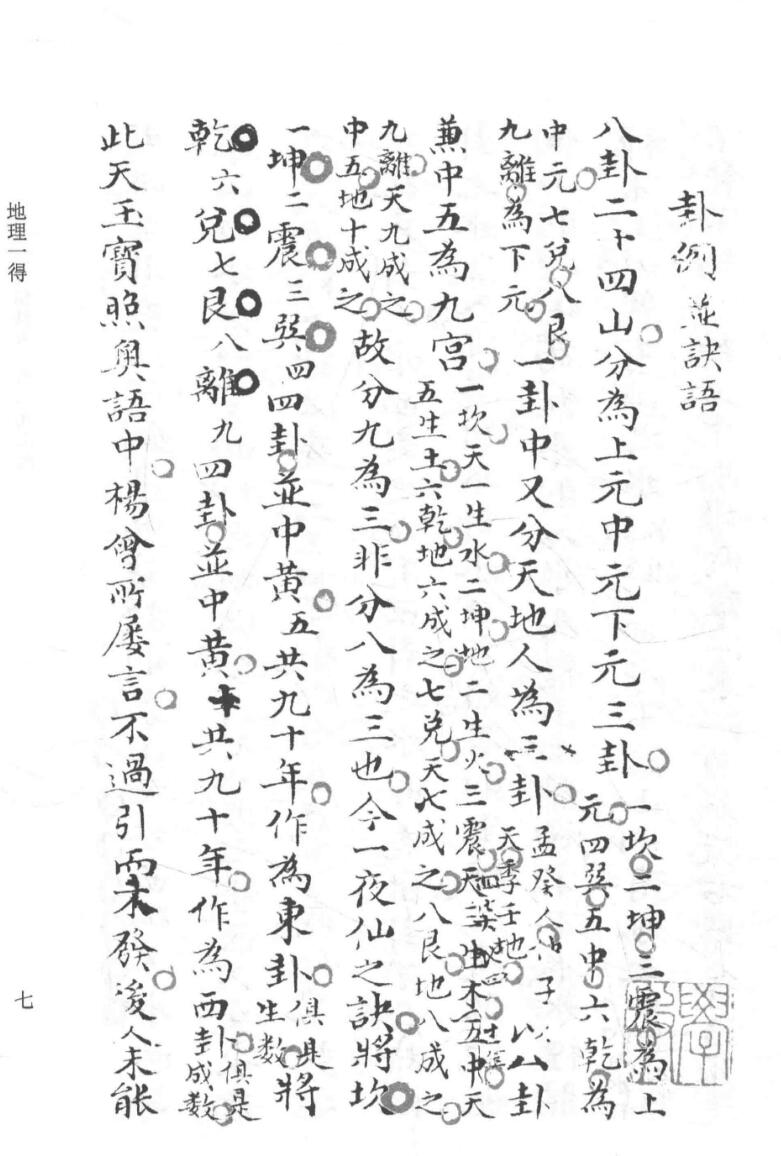 卦例 並訣語
八卦二十四山分為上元中元下元三卦一坎二坤三震為上元四巽五中六乾為
中元七兌八艮九離為下元一卦中又分天地人為三卦孟癸人仲子天季壬地以八卦
兼中五為九宮一坎天一生水二坤地二生火三震天三生木五中天五生土六乾地六成之七兌天七成之八艮地八成之
九離天九成之中五地十成之故分九為三非分八為三也今一夜仙之訣將坎
一坤二震三巽四四卦並中黃五共九十年作為東卦俱是生數將
乾六兌七艮八離九四卦並中黃十共九十年作為西卦俱是成數
此天玉寶照奧語中楊曾所屢言不過引而未發後人未能
地理一得
七